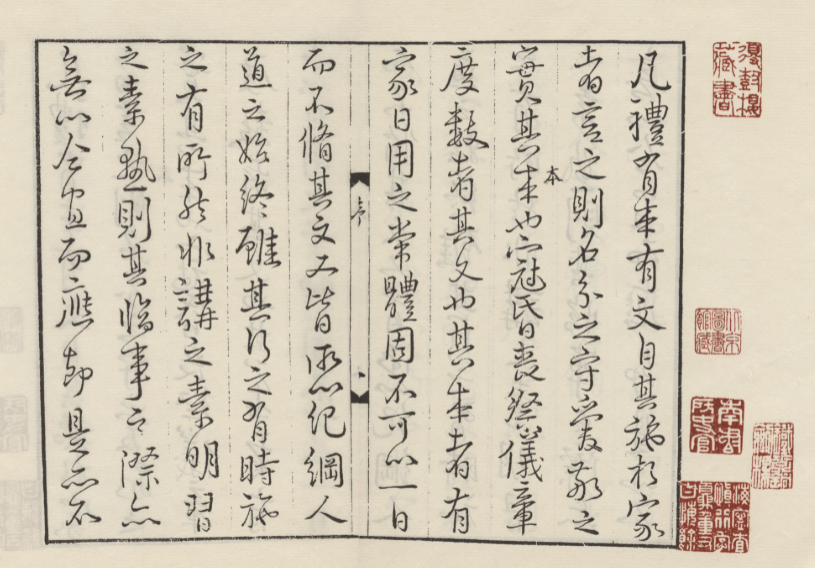 凡禮有本有文自其施於家
者言之則名分之守愛敬之
實其本也冠昏喪祭儀章
本
度數者其文也其本者有
家日用之常體固不可以一日
序
而不脩其文又皆所以紀綱人
道之始終雖其行之有時施
之有所然非講之素明習
之素熟則其臨事之際亦
無以合宜而應節是亦不
北京圖書館藏